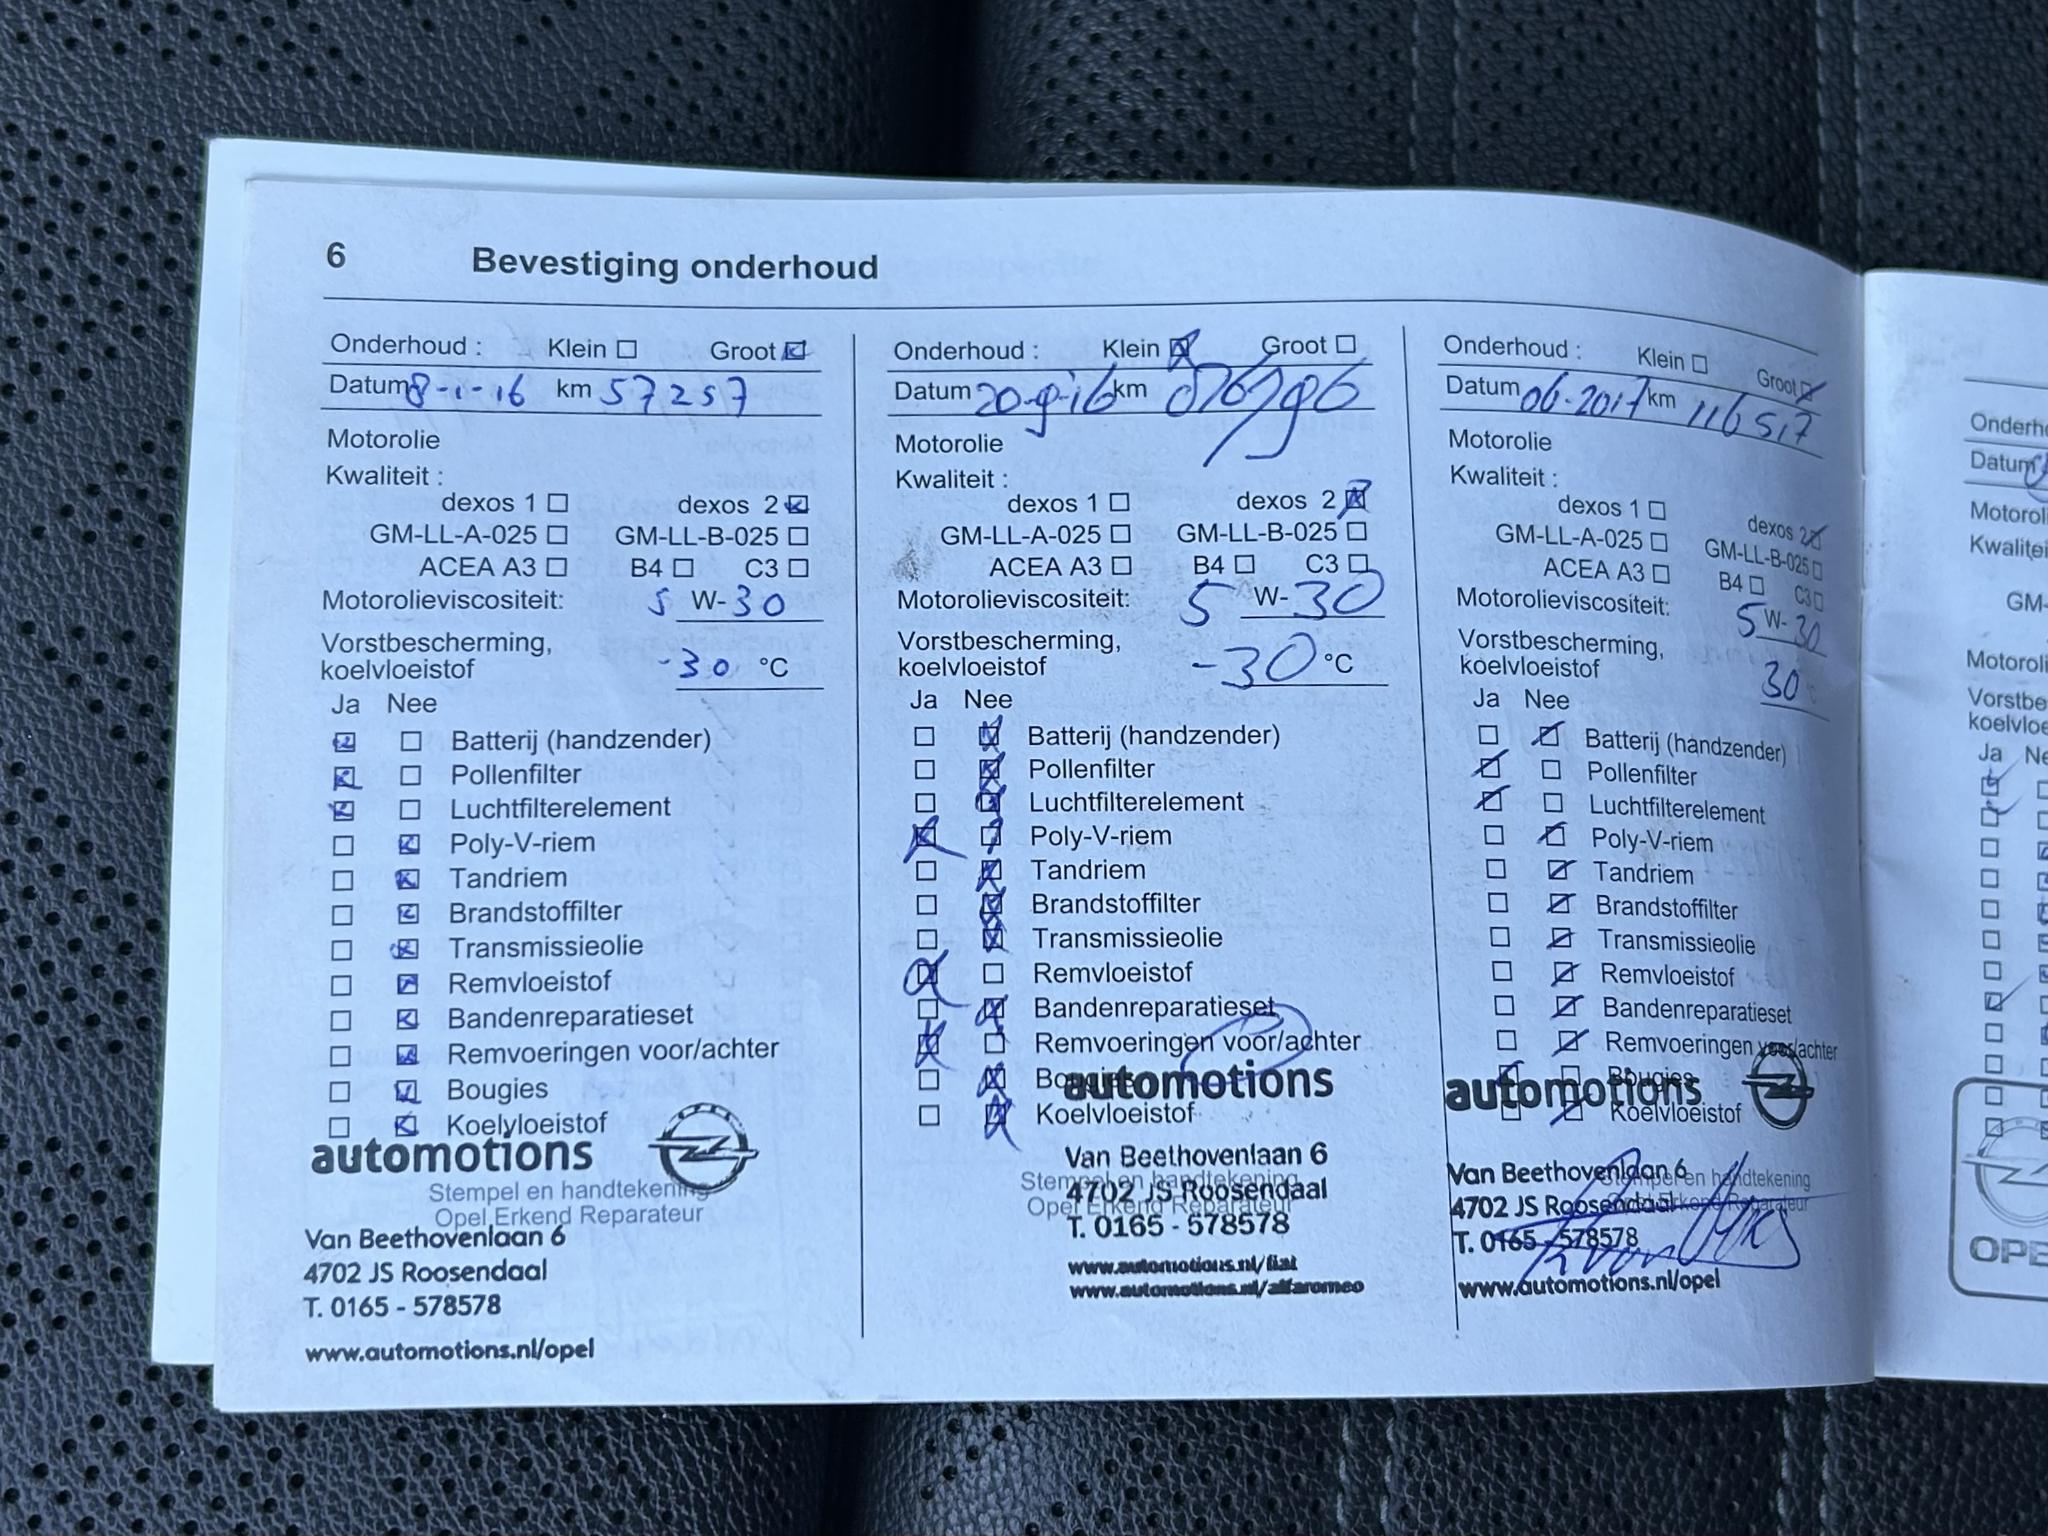 6 Bevestiging onderhoud
Onderhoud : Klein Groot
Datum 8-1-16 km 57257
Motorolie
Kwaliteit :
dexos 1 dexos 2
GM-LL-A-025 GM-LL-B-025
ACEA A3 B4 C3
Motorolieviscositeit: 5 W-30
Vorstbescherming,
koelvloeistof -30 °C
Ja Nee
Batterij (handzender)
Pollenfilter
Luchtfilterelement
Poly-V-riem
Tandriem
Brandstoffilter
Transmissieolie
Remvloeistof
Bandenreparatieset
Remvoeringen voor/achter
Bougies
Koelvloeistof
automotions
Stempel en handtekening
Opel Erkend Reparateur
Van Beethovenlaan 6
4702 JS Roosendaal
T. 0165 - 578578
www.automotions.nl/opel
Onderhoud : Klein Groot
Datum 20-9-16 km
Motorolie
Kwaliteit :
dexos 1 dexos 2
GM-LL-A-025 GM-LL-B-025
ACEA A3 B4 C3
Motorolieviscositeit: 5 W-30
Vorstbescherming,
koelvloeistof -30 °C
Ja Nee
Batterij (handzender)
Pollenfilter
Luchtfilterelement
Poly-V-riem
Tandriem
Brandstoffilter
Transmissieolie
Remvloeistof
Bandenreparatieset
Remvoeringen voor/achter
Bougies
automotions
Koelvloeistof
Van Beethovenlaan 6
Stempel en handtekening
4702 JS Roosendaal
Opel Erkend Reparateur
T. 0165 - 578578
www.automotions.nl/fiat
www.automotions.nl/alfaromeo
Onderhoud : Klein Groot
Datum 06-2017 km 116517
Motorolie
Kwaliteit :
dexos 1 dexos 2
GM-LL-A-025 GM-LL-B-025
ACEA A3 B4 C3
Motorolieviscositeit: 5 W-30
Vorstbescherming,
koelvloeistof 30 °C
Ja Nee
Batterij (handzender)
Pollenfilter
Luchtfilterelement
Poly-V-riem
Tandriem
Brandstoffilter
Transmissieolie
Remvloeistof
Bandenreparatieset
Remvoeringen voor/achter
Bougies
automotions
Koelvloeistof
Van Beethovenlaan 6
Stempel en handtekening
4702 JS Roosendaal
Opel Erkend Reparateur
T. 0165 - 578578
www.automotions.nl/opel
Onderh
Datum
Motoroli
Kwalitei
GM-
Motoroli
Vorstbe
koelvloe
Ja Ne
OPE